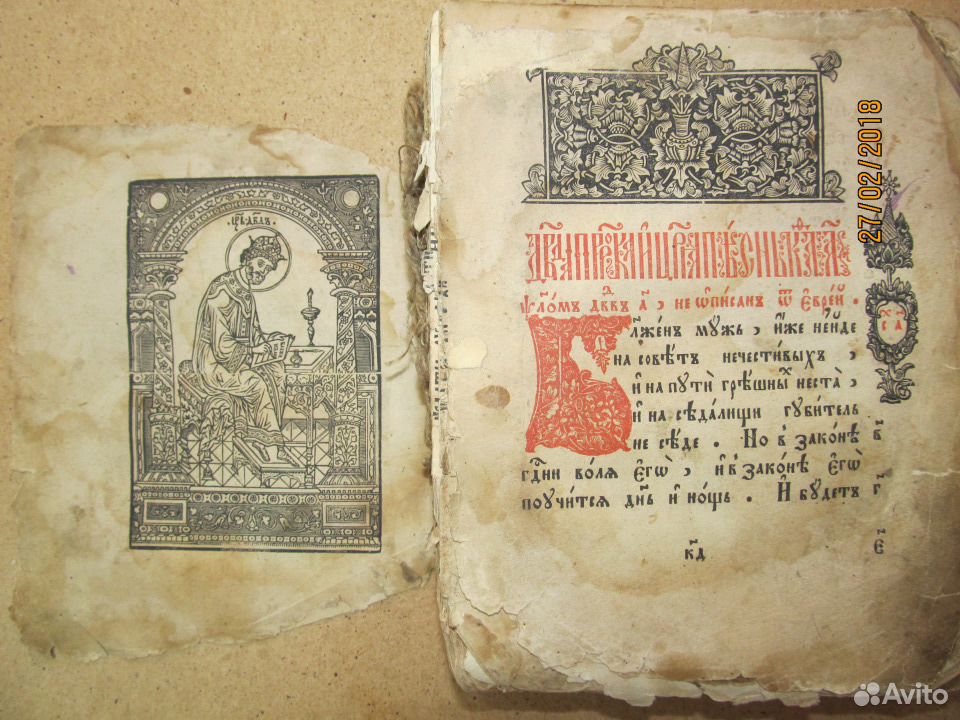 цр҃ь дв҃дъ.
Дв҃да прⷪ҇ка и цр҃ѧ пѣснь
ѱало́мъ дв҃дꙋ, а҃, не ѡ҆пи́санъ ѿ є҆вре́й.
Бл҃же́нъ мꙋ́жъ, и҆́же не и́де
на совѣ́тъ нечести́выхъ,
и҆ на пꙋти̑ грѣ́шныхъ не ста̀,
и҆ на сѣда́лищи гꙋби́тель
не сѣ́де. Но в̾ зако́нѣ
гд҃ни во́лѧ є҆гѡ̀, и҆ в̾ зако́нѣ є҆гѡ̀
поꙋчи́тсѧ дн҃ь и҆ но́щь. И҆ бꙋ́детъ
в҃
г҃
є҃
к҃д
27/02/2018
Avito